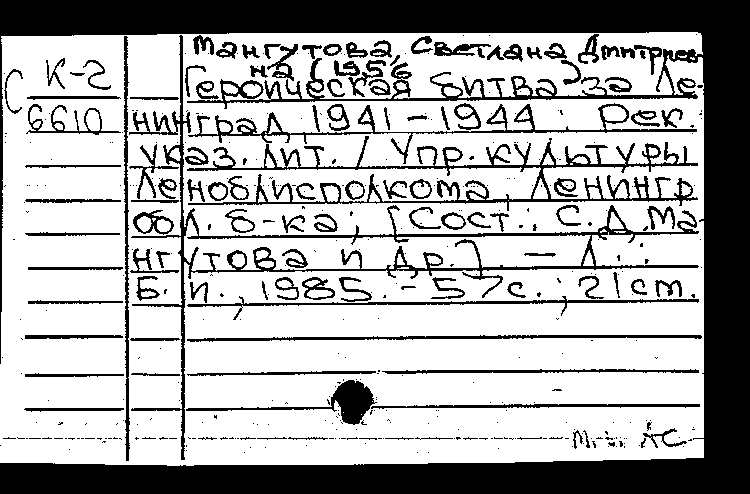 Мангутова, Светлана Дмитриев-
на (1956
С К-2
6610
Героическая битва за Ле-
нинград, 1941-1944 : Рек.
указ. лит. / Упр. культуры
Леноблисполкома, Ленингр.
обл. б-ка; [Сост.: С.Д. Ма-
нгутова и др.]. — Л.:
Б.и., 1985. - 57с.; 21см.